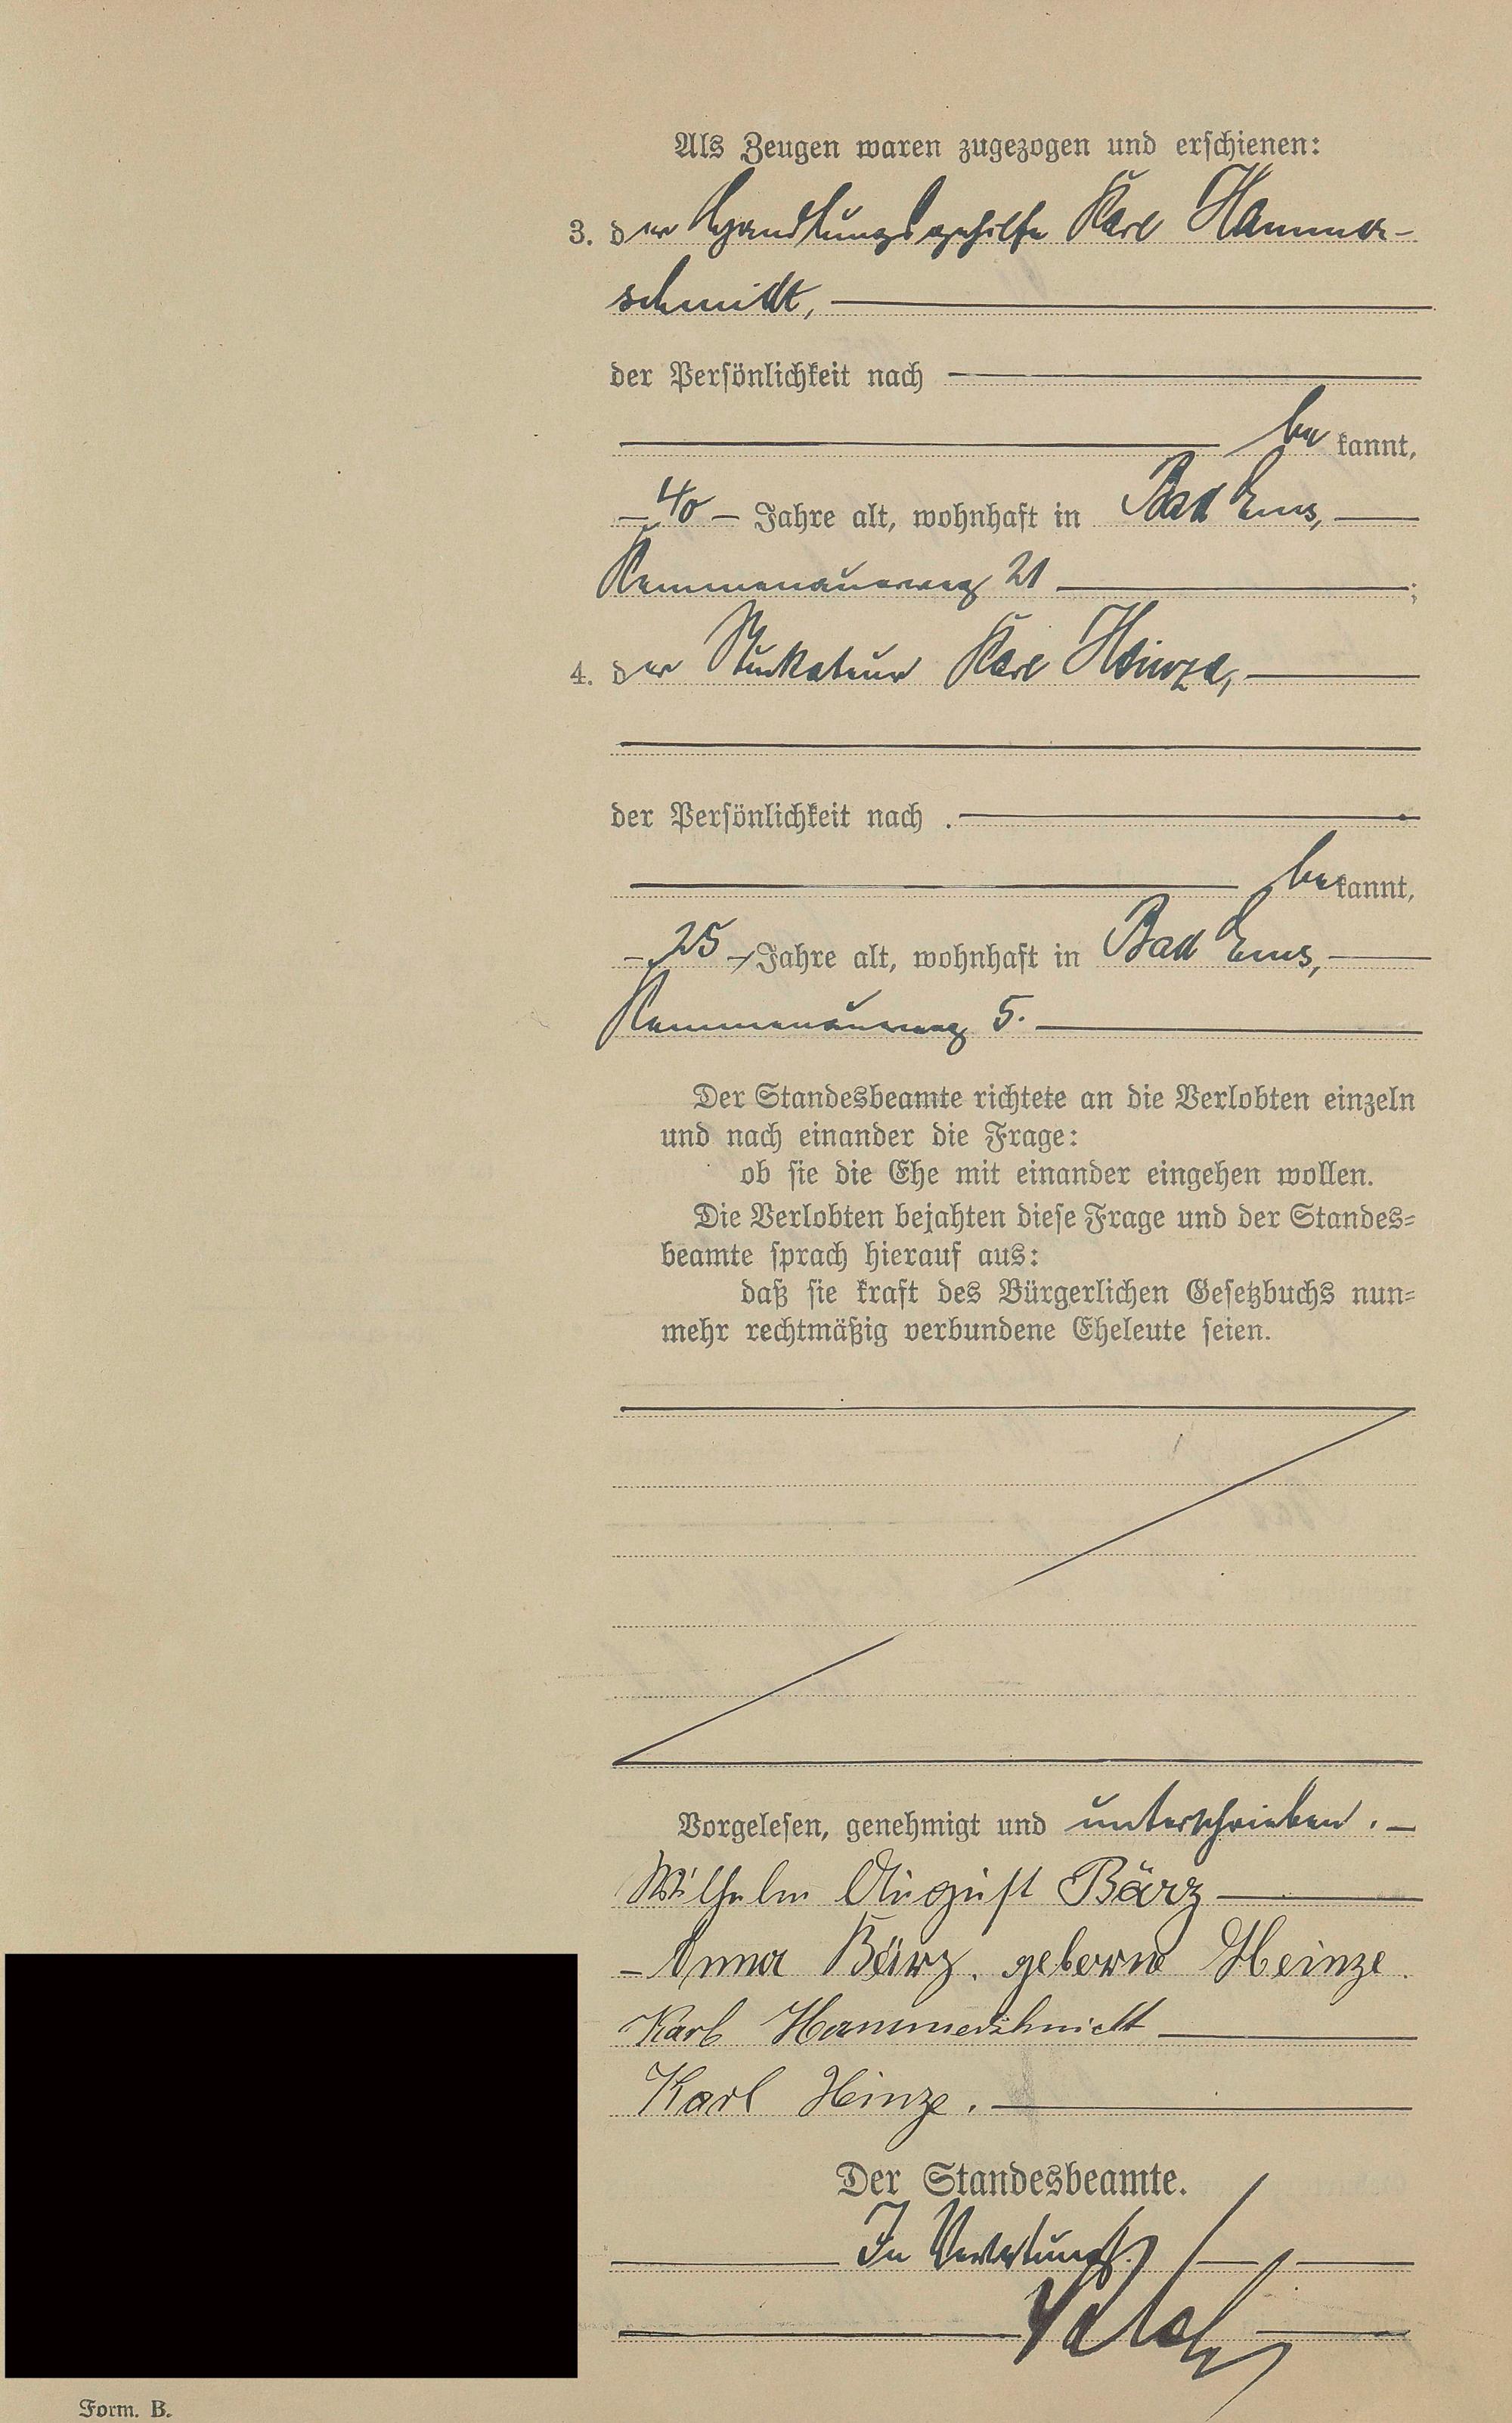 Als Zeugen waren zugezogen und erschienen:
3. der Handlungsgehilfe Karl Hammer-
schmidt,
der Persönlichkeit nach
be kannt,
40 Jahre alt, wohnhaft in Bad Ems,
Kemmenauerweg 21 ;
4. der Stukateur Karl Heinze,
der Persönlichkeit nach
be kannt,
25 Jahre alt, wohnhaft in Bad Ems,
Kemmenauerweg 5.
Der Standesbeamte richtete an die Verlobten einzeln
und nach einander die Frage:
ob sie die Ehe mit einander eingehen wollen.
Die Verlobten bejahten diese Frage und der Standes-
beamte sprach hierauf aus:
daß sie kraft des Bürgerlichen Gesetzbuchs nun-
mehr rechtmäßig verbundene Eheleute seien.
Vorgelesen, genehmigt und unterschrieben.
Wilhelm August Bärz
Anna Bärz. geborne Heinze.
Karl Hammerschmidt
Karl Heinze.
Der Standesbeamte.
In Vertretung.
Form. B.